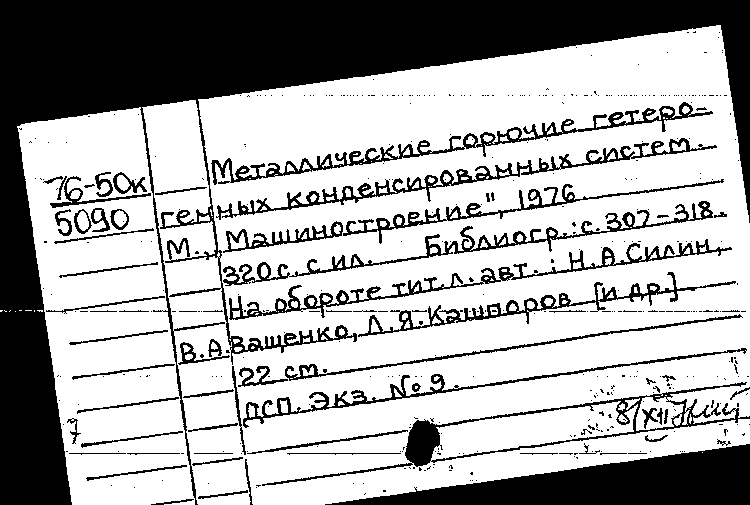 Металлические горючие гетеро-
76-50к
5090
генных конденсированных систем.
М., „Машиностроение", 1976
320 с. с ил. Библиогр.: с. 307-318.
На обороте тит. л. авт.: Н.А.Силин,
В.А.Ващенко, Л.Я.Кашпоров [и др.]
22 см.
ДСП. Экз. № 9.
7
8/XII